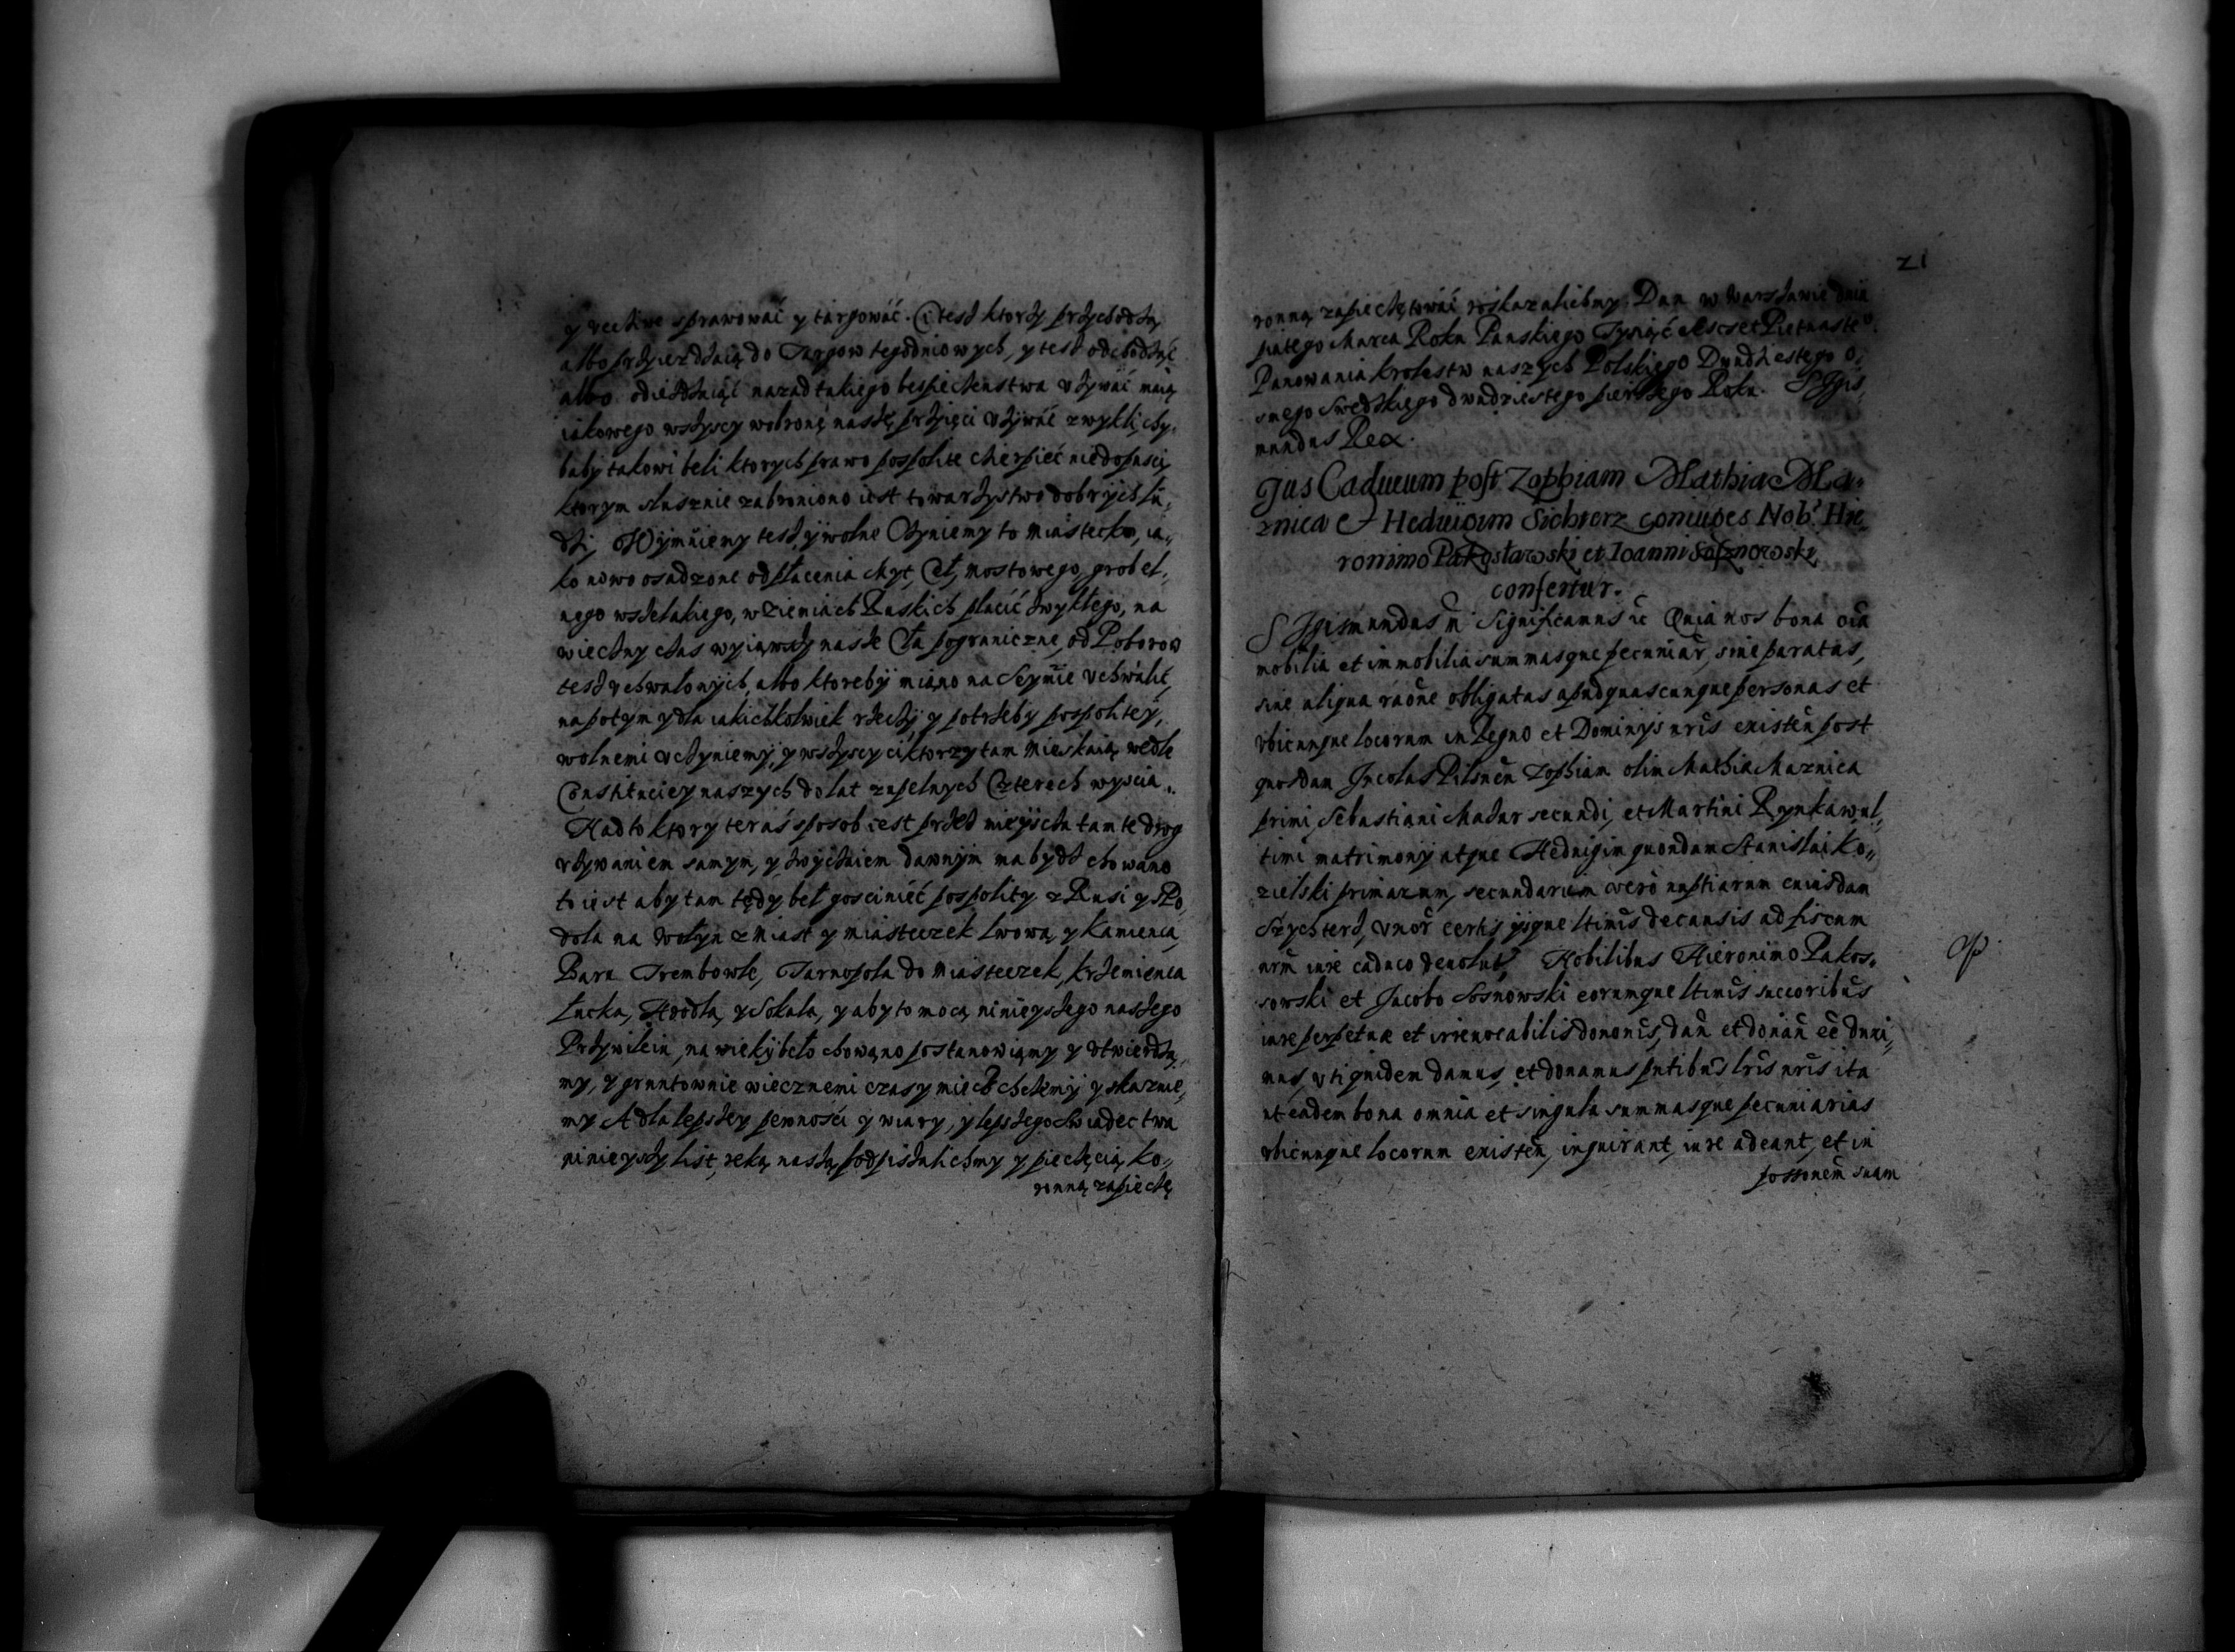 y uczciwe sprawować y targować. Ci tesz ktorzy przychodzą
albo przyiezdzaią do Targow tegodniowych, y tesz odchodząc
albo odiezdzaiąc nazad takiego bespieczenstwa używać maią
iakowego wszyscy w obronę naszę przyięci używać zwykli, chy,
baby takowi beli ktorych prawo pospolite cierpieć niedopusci,
ktorym słusznie zabroniono iest towarzystwo dobrych lu,
dzi, Wyimuiemy tesz y wolne Czyniemy to miasteczko, ia,
ko nowo osadzone od płacenia Myt, Ceł, mostowego, grobel,
nego wszelakiego, w ziemiach Ruskich płacić zwykłego, na
wieczny czas wyiąwszy nasze Cła pograniczne, od Poborow
tesz uchwalonych, albo ktoreby miano na Seymie uchwalić,
napotym y dla iakichkolwiek rzeczy y potrzeby pospolitey,
wolnemi uczyniemy, y wszyscy ci ktorzy tam mieszkaią wedle
Constituciey naszych do lat zupelnych Czterech wyscia.
Nad to ktory teraś sposob iest przez mieyscza tamte drog
używaniem samym, y zwyczaiem dawnym ma bydz chowano
to iest aby tam tędy beł gosciniec pospolity z Rusi y s Po,
dola na Wołyn z Miast y miasteczek Lwowa, y Kamienca,
Baru Trembowle, Tarnopola do miasteczek, krzemienca
Łucka, Horodla, y Sokala, y aby to mocą ninieyszego naszego
Przywileiu, na wieky beło chowano postanowiamy y utwierdza,
my, y gruntownie wiecznemi czasy mieć chcemy y skazuie,
my A dla lepszey pewności y wiary, y lepszego swiadectwa
ninieyszy list, ręką naszą podpisalichmy y pieczęcią ko,
ronną zapieczę
21
ronną zapieczętować roskazalichmy. Dan w Warszawie dnia
piątego Marca Roku Panskiego Tysiąć Szescset Pietnaste°.
Panowania krolestw naszych Polskiego Dwudziestego o,
smego Swedzkiego dwudziestego pierszego Roku. SIgis,
mundus Rex.
Jus Caducum post Zophiam Mathia Ma,
znica et Heduigim Sichterz coniuges Nob: Hie,
ronimo Pakosławski et Ioanni Sosznowski
confertur.
SIgismundus III Significamus &c Quia nos bona oia
mobilia et immobilia summasque pecuniar, siue paratas,
siue aliqua raone obligatas apud quascunque personas et
ubicunque locorum in Regno et Dominys nris existen post
quosdam Incolas Pilsnen Zophiam olim Mathia Maznica
primi, Sebastiani Mazur secundi, et Martini Rynkaw ul,
timi matrimony atque Hedvigim quondam Stanislai Ko,
zielski primarum, secundarum vero nuptiarum cuiusdam
Szychterz, uxor certis ijsque ltimis de causis ad fiscum
nrm iure caduco devolut, Nobilibus Hieronimo Pakos,
sowski et Jacobo Sosnowski eorumque ltimis succoribus
iure perpetuae et irreuocabilis dononis, dan et donan ee duxi,
mus, uti quidem damus, et donamus pntibus lris nris ita
ut eadem bona omnia et singula summasque pecuniarias
ubicunque locorum existen, inquirant, iure adeant, et in
possonem suam